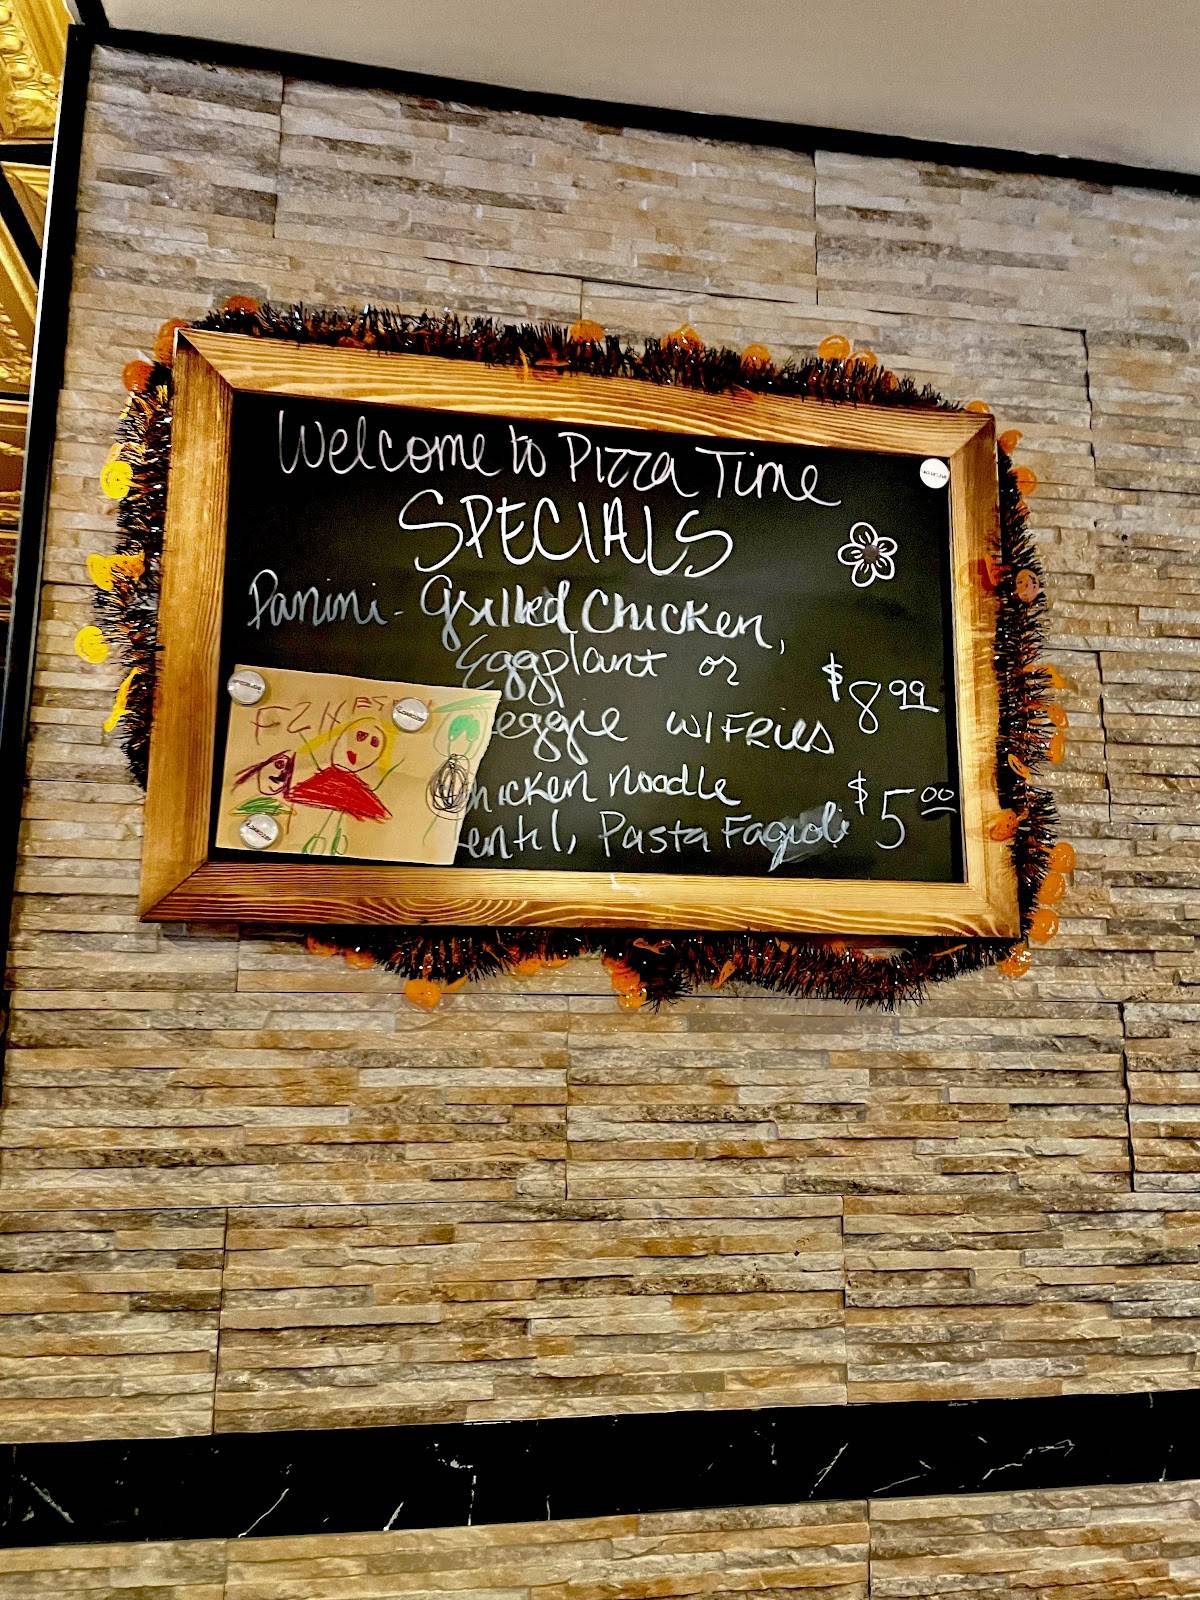 Welcome to Pizza Time
SPECIALS
Panini - Grilled Chicken,
Eggplant or
eggie w/Fries
$8.99
hicken noodle
entil, Pasta Fagioli
$5.00